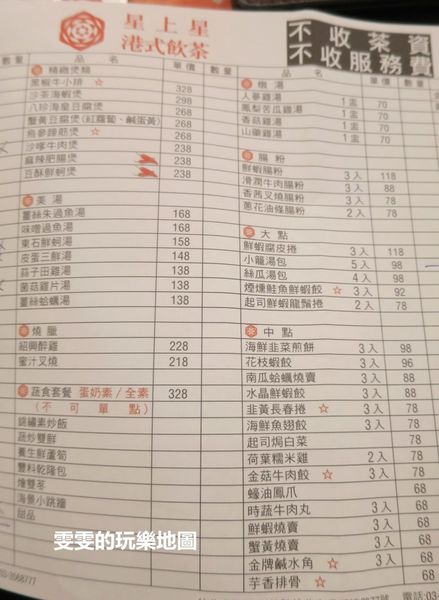 星上星
港式飲茶
不收茶資
不收服務費
數量 品名 單價 數量
精緻煲類
黑椒牛小排 ☆ 328
沙茶海蝦煲 298
八珍海皇豆腐煲 268
蟹黃豆腐煲(紅蘿蔔、鹹蛋黃) 268
烏參蹄筋煲 ☆ 268
沙嗲牛肉煲 238
麻辣肥腸煲 238
豆酥鮮蚵煲 238
羹湯
薑絲朱過魚湯 168
味噌過魚湯 168
東石鮮蚵湯 158
皮蛋三鮮湯 148
蒜子田雞湯 138
菌菇雞片湯 138
薑絲蛤蠣湯 138
燒臘
紹興醉雞 228
蜜汁叉燒 218
蔬食套餐 蛋奶素/全素 328
(不可單點)
錦繡素炒飯
蔬炒雙鮮
養生鮮蘆筍
豐料乾隆包
燴雙茎
海景小跳牆
甜品
品名 單價 數量
燉湯
人蔘雞湯 1盅 70
鳳梨苦瓜雞湯 1盅 70
香菇雞湯 1盅 70
山藥雞湯 1盅 70
腸粉
鮮蝦腸粉 3入 118
滑潤牛肉腸粉 3入 88
香茜叉燒腸粉 3入 78
蔥花油條腸粉 2入 78
大點
鮮蝦腐皮捲 3入 118
小籠湯包 5入 98
絲瓜湯包 4入 98
煙燻鮭魚鮮蝦餃 ☆ 3入 92
起司鮮蝦龍鬚捲 2入 78
中點
海鮮韭菜煎餅 3入 98
花枝蝦餃 3入 96
南瓜蛤蠣燒賣 3入 88
水晶鮮蝦餃 3入 88
韭黃長春捲 ☆ 3入 78
海鮮魚翅餃 3入 78
起司焗白菜 78
荷葉糯米雞 2入 78
金菇牛肉餃 ☆ 3入 78
蠔油鳳爪 68
時蔬牛肉丸 3入 68
鮮蝦燒賣 3入 68
蟹黃燒賣 3入 68
金牌鹹水角 ☆ 3入 68
芋香排骨 ☆ 68
雯雯的玩樂地圖
電話:03-